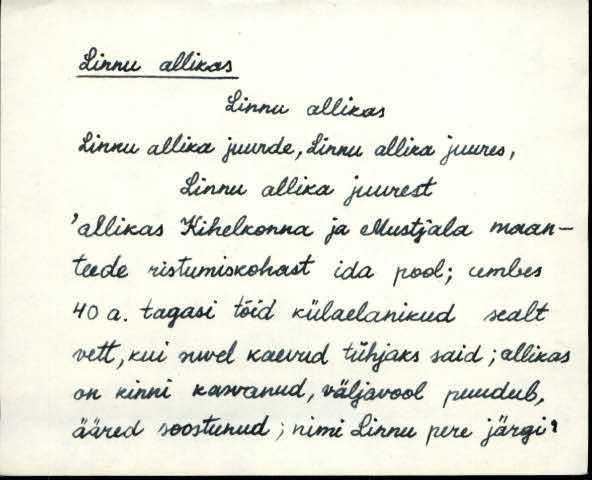 Linnu allikas
Linnu allikas
Linnu allika juurde, Linnu allika juures,
Linnu allika juurest
'allikas Kihelkonna ja Mustjala maan-
teede ristumiskohast ida pool; umbes
40 a. tagasi tõid külaelanikud sealt
vett, kui suvel kaevud tühjaks said; allikas
on kinni kasvanud, väljavool puudub,
ääred soostunud; nimi Linnu pere järgi'